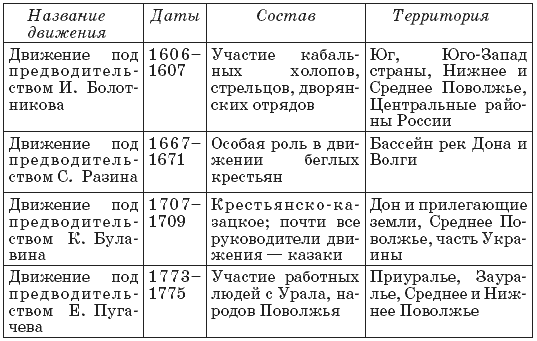 Название движения Даты Состав Территория
Движение под предводитель-
ством И. Болот-
никова
1606–
1607
Участие кабаль-
ных холопов,
стрельцов, дворян-
ских отрядов
Юг, Юго-Запад
страны, Нижнее и
Среднее Поволжье,
Центральные райо-
ны России
Движение под
предводитель-
ством С. Разина
1667–
1671
Особая роль в дви-
жении беглых
крестьян
Бассейн рек Дона и
Волги
Движение под
предводитель-
ством К. Була-
вина
1707–
1709
Крестьянско-ка-
зацкое; почти все
руководители дви-
жения — казаки
Дон и прилегающие
земли, Среднее По-
волжье, часть Укра-
ины
Движение под
предводитель-
ством Е. Пуга-
чева
1773–
1775
Участие работных
людей с Урала, на-
родов Поволжья
Приуралье, Заура-
лье, Среднее и Ниж-
нее Поволжье